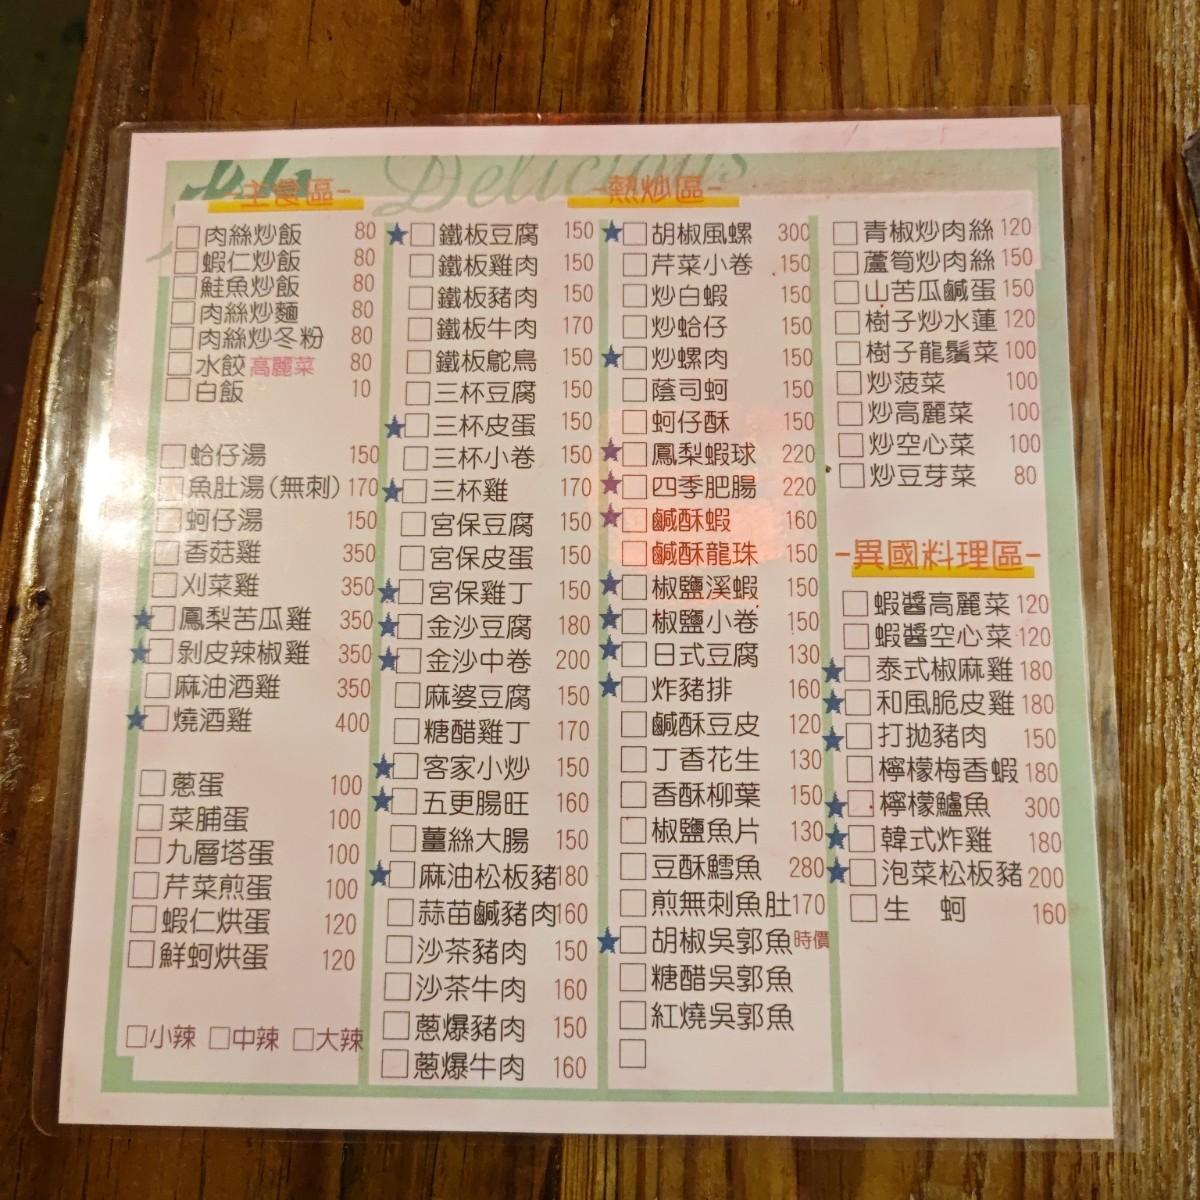 Delicious
-主食區-
肉絲炒飯 80
蝦仁炒飯 80
鮭魚炒飯 80
肉絲炒麵 80
肉絲炒冬粉 80
水餃 高麗菜 80
白飯 10
蛤仔湯 150
魚肚湯(無刺) 170
蚵仔湯 150
香菇雞 350
刈菜雞 350
鳳梨苦瓜雞 350
剝皮辣椒雞 350
麻油酒雞 350
燒酒雞 400
蔥蛋 100
菜脯蛋 100
九層塔蛋 100
芹菜煎蛋 100
蝦仁烘蛋 120
鮮蚵烘蛋 120
小辣 中辣 大辣
-熱炒區-
鐵板豆腐 150
鐵板雞肉 150
鐵板豬肉 150
鐵板牛肉 170
鐵板鴕鳥 150
三杯豆腐 150
三杯皮蛋 150
三杯小卷 150
三杯雞 170
宮保豆腐 150
宮保皮蛋 150
宮保雞丁 150
金沙豆腐 180
金沙中卷 200
麻婆豆腐 150
糖醋雞丁 170
客家小炒 150
五更腸旺 160
薑絲大腸 150
麻油松板豬 180
蒜苗鹹豬肉 160
沙茶豬肉 150
沙茶牛肉 160
蔥爆豬肉 150
蔥爆牛肉 160
胡椒風螺 300
芹菜小卷 150
炒白蝦 150
炒蛤仔 150
炒螺肉 150
蔭司蚵 150
蚵仔酥 150
鳳梨蝦球 220
四季肥腸 220
鹹酥蝦 160
鹹酥龍珠 150
椒鹽溪蝦 150
椒鹽小卷 150
日式豆腐 130
炸豬排 160
鹹酥豆皮 120
丁香花生 130
香酥柳葉 150
椒鹽魚片 130
豆酥鱈魚 280
煎無刺魚肚 170
胡椒吳郭魚 時價
糖醋吳郭魚
紅燒吳郭魚
青椒炒肉絲 120
蘆筍炒肉絲 150
山苦瓜鹹蛋 150
樹子炒水蓮 120
樹子龍鬚菜 100
炒菠菜 100
炒高麗菜 100
炒空心菜 100
炒豆芽菜 80
-異國料理區-
蝦醬高麗菜 120
蝦醬空心菜 120
泰式椒麻雞 180
和風脆皮雞 180
打拋豬肉 150
檸檬梅香蝦 180
檸檬鱸魚 300
韓式炸雞 180
泡菜松板豬 200
生 蚵 160